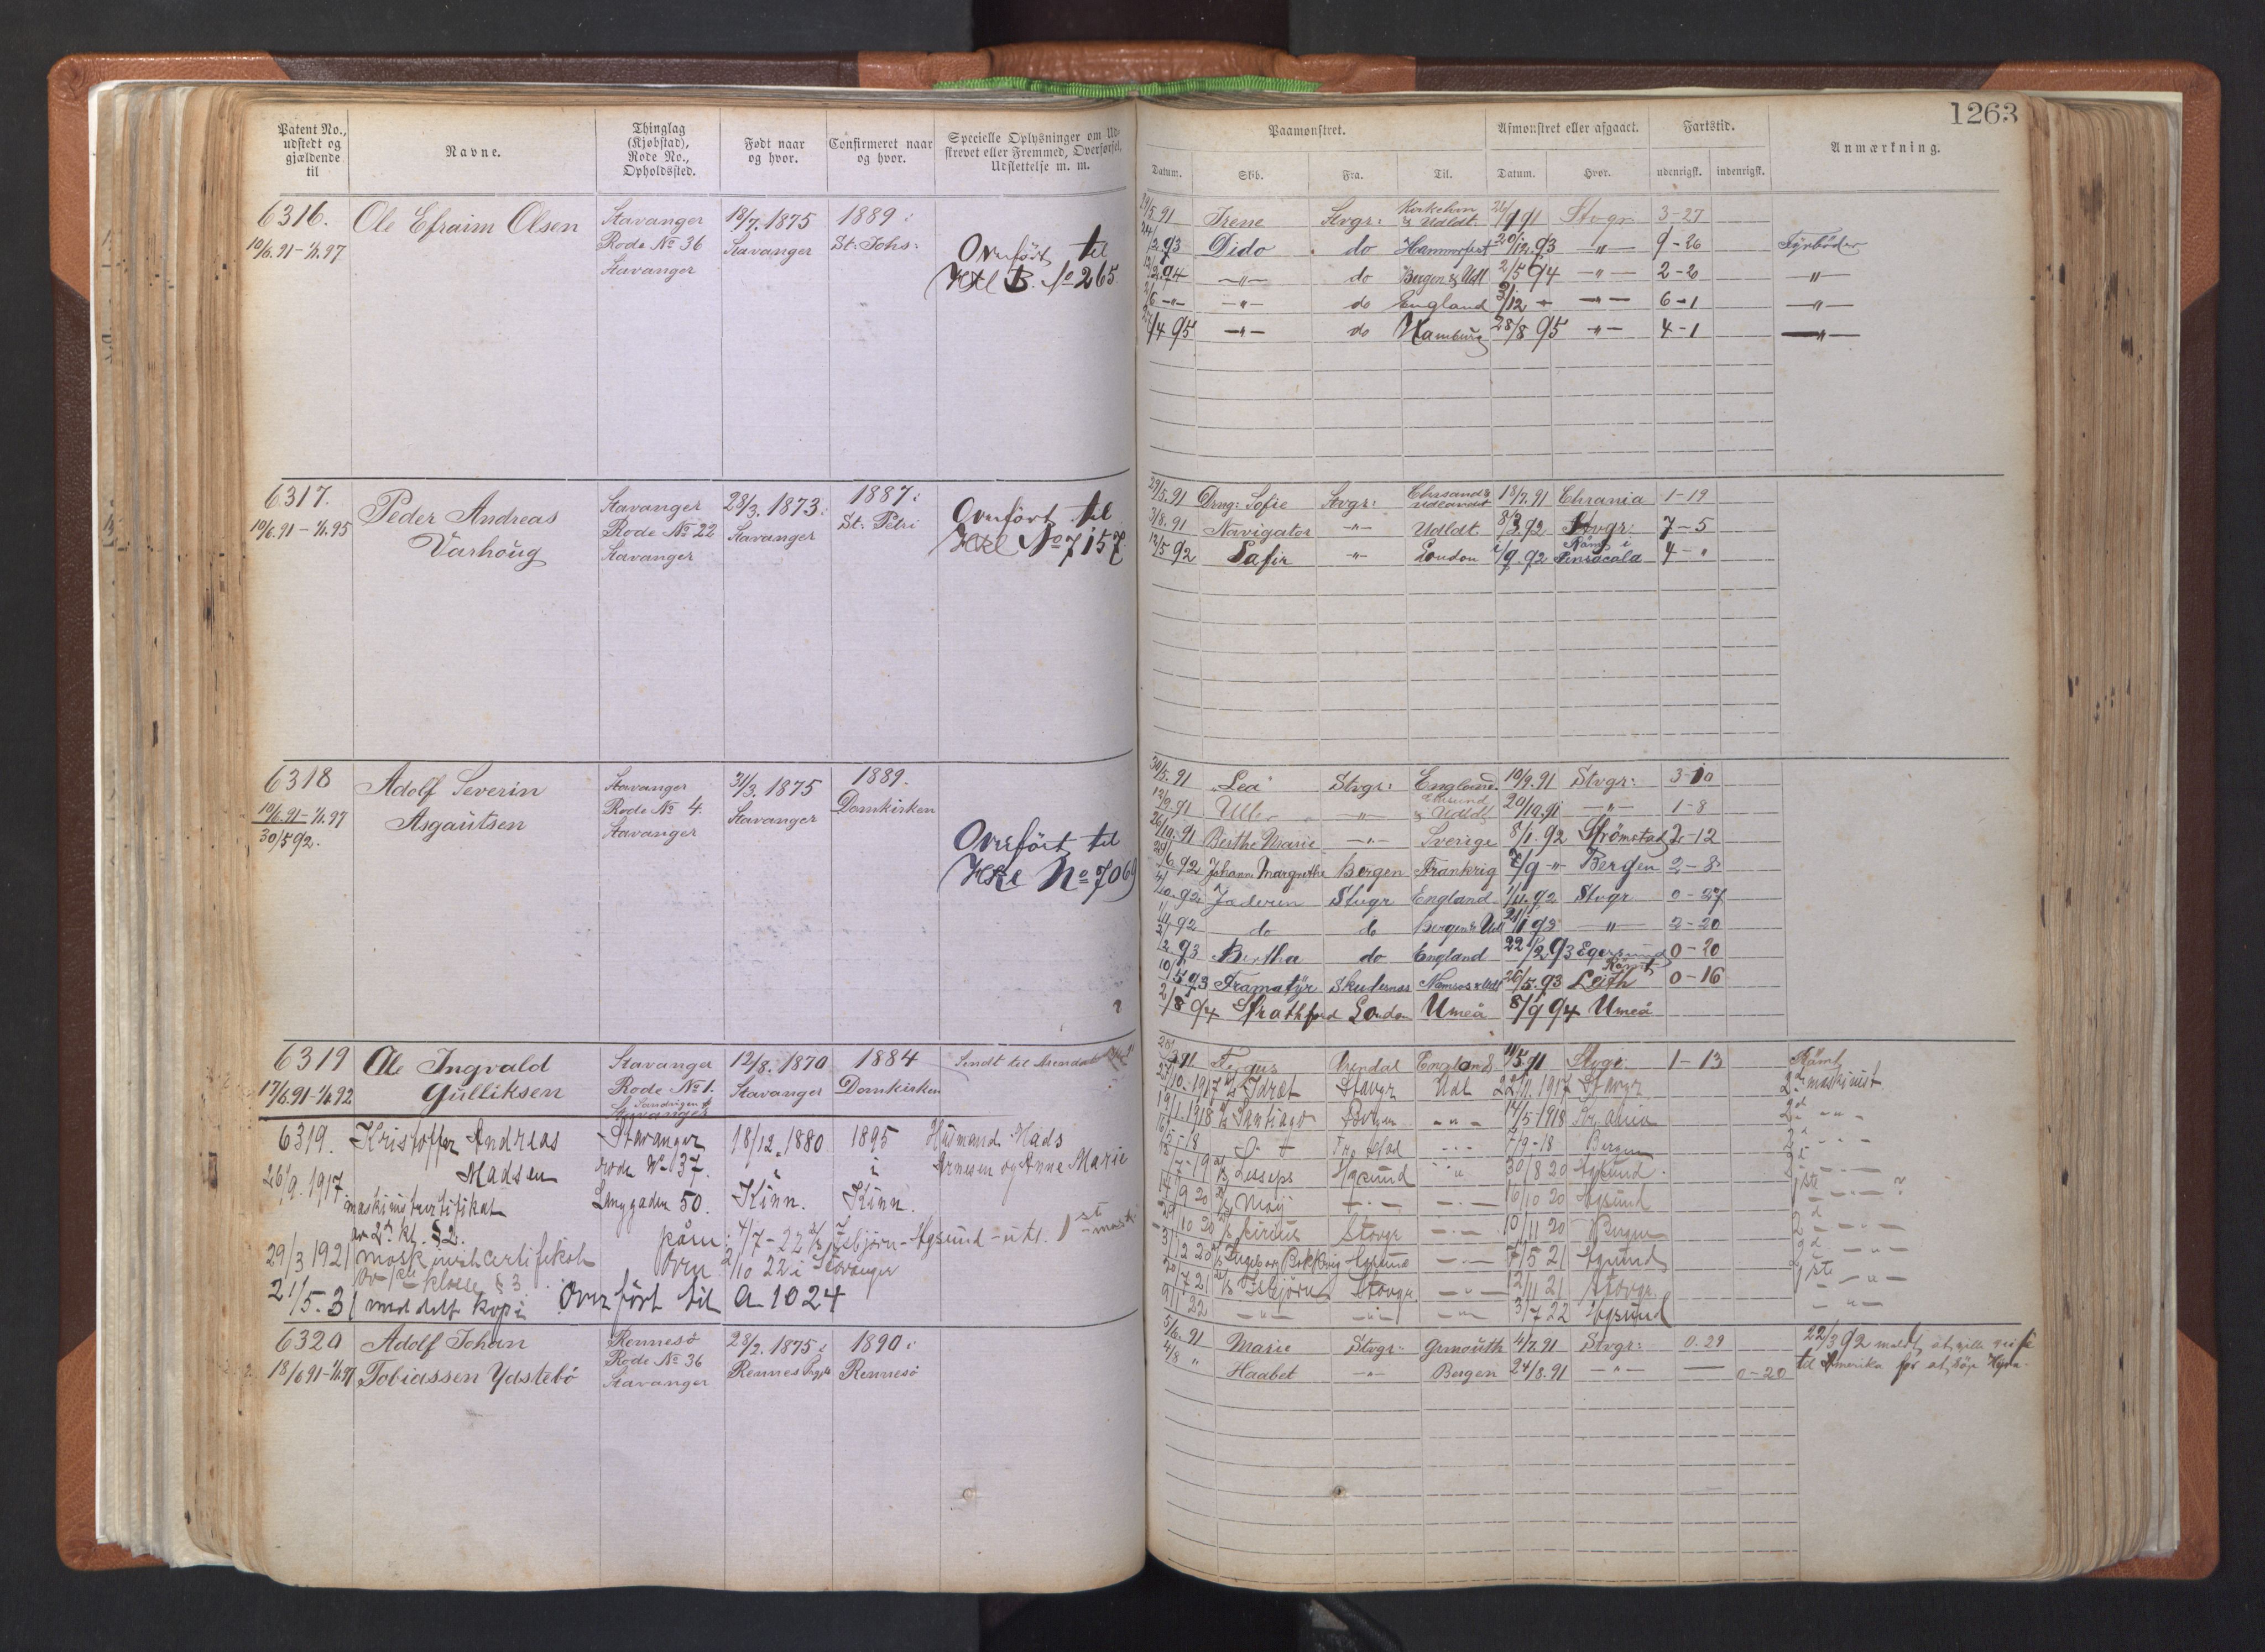 1263
Patent No., udstedt og gjældende til
Navne.
Thinglag (Kjøbstad), Rode No., Opholdssted.
Født naar og hvor.
Confirmeret naar og hvor.
Specielle Oplysninger om Udskrevet eller Fremmed, Overførsel, Udslettelse m. m.
Paamønstret.
Afmønstret eller afgaaet.
Fartstid.
Anmærkning.
Datum. Skib. Fra. Til. Datum. Hvor. udenrigsk. indenrigsk.
6316. Ole Efraim Olsen Stavanger 18/7. 1875 1889 :
10/6. 91 - 1/1. 97 Rode No 36 Stavanger St: Johs:
Stavanger
Overført til
Hkl B. No 265
91 Irene Stvgr: & Udldt. 91 Stvgr 3-27
93 Dido do Hammerfest 20/12. 93 -"- 9-26 Fyrbøder
94 -"- do Bergen & Udl 2/5 94 -"- 2-2 -"-
2/6 -"- -"- do England 3/12 -"- -"- 6-1 -"-
27/4 95 -"- do Hamburg 28/8 95 -"- 4-1 -"-
6317. Peder Andreas Stavanger 28/3. 1873: 1887:
10/6. 91 - 1/1. 95 Varhoug Rode No 22 Stavanger St: Petri
Stavanger
Overført til
Hkl No 7157
29/5. 91 Drng: Sofie Stvgr: Chrsand & Udlandet 18/7. 91 Chrania 1-19
7/8. 91 Navigator -"- Udldt 8/3. 92 Stvgr 7-5
12/5 92 Safir -"- London 1/9. 92 Rømt i Pensacola 4-"
6318 Adolf Severin Stavanger 31/3. 1875 1889.
10/6. 91 - 1/1. 97 Asgautsen Rode No 4. Stavanger Domkirken
30/5 92. Stavanger
Overført til
Hkl No 7069
30/5. 91 Lea Stvgr: England 10/9. 91 Stvgr: 3-10
91 Uller -"- & Udldt 20/10. 91 -"- 1-8
26/10. 91 Berthe Marie -"- Sverige 8/1. 92 Strömstad 2-12
92 Johanne Margrethe Bergen Frankrig 7/9 -"- Bergen 2-8
92 Jæderen Stvgr England 1/11. 92 Stvgr 0-27
92 do do Bergen & Udl 21/1 93 -"- 2-20
93 Bertha do England 22/2. 93 Egersund 0-20
10/5 93 Framatyr Skudesnes Namsos & Udl 26/5. 93 Rømt Leith 0-16
2/8 94 Strathford London Umeå 8/9 94 Umeå
6319 Ole Ingvald Stavanger 12/8. 1870 1884 Sendt til Arendal
17/6. 91 - 1/1. 92 Gulliksen Rode No 1. Stavanger Domkirken
Stavanger
91 Fegus Arendal England 11/5 91 Stvgr 1-13 Rømt
6319. Kristoffer Andreas Stavanger 18/12. 1880 1895 Husmand Mads
Madsen rode No 137. i i Arnesen og Anne Marie
26/9. 1917 Langgaden 50. Kinn. Kinn.
maskinistcertifikat
av 2n kl. § 2.
29/3 1921 maskinistcertifikat
av 1ste klasse § 3
påm: 4/7 - 22 Isbjørn - Hgsund - utl. 1st mask
Overf 2/10 22 i Stavanger
21/5. 31 meddelt kopi Overført til A 1024
27/10. 1917 Idræt Stavgr Udl 22/11. 1917 Stavgr 2d maskinist
19/1 1918 Santiago Bergen -"- 14/5 1918 Kr.ania 2d -"-
-18 Do Fr.stad -"- 7/9 -18 Bergen 2d -"-
Lesseps Hgsund -"- 30/8 20 Hgsund
20 Maij -"- -"- 16/10 20 Hgsund 1ste -"- ?
29/10 20 Sirius Stavgr -"- 10/11 20 Bergen 2d -"-
3/12 20 Hgsund -"- 7/5 21 Hgsund 2d -"-
20/7 21 Isbjørn Stavgr -"- 12/11 21 Stavgr 1ste -"-
9/1 22 -"- -"- -"- 3/7 22 Hgsund -"-
6320 Adolf Johan Rennesö 28/2. 1875 : 1890 :
18/6 91 - 1/1. 97 Tobiassen Ydstebö Rode No 36 Rennes Prgjld Rennesö
Stavanger
5/6. 91 Marie Stvgr: Grmouth 4/7. 91 Stvgr: 0. 29 22/3 92 meldt, at ville reise
4/8 " Haabet -"- Bergen 24/8. 91 -"- 0-20 til Amerika for at søge Hyre.